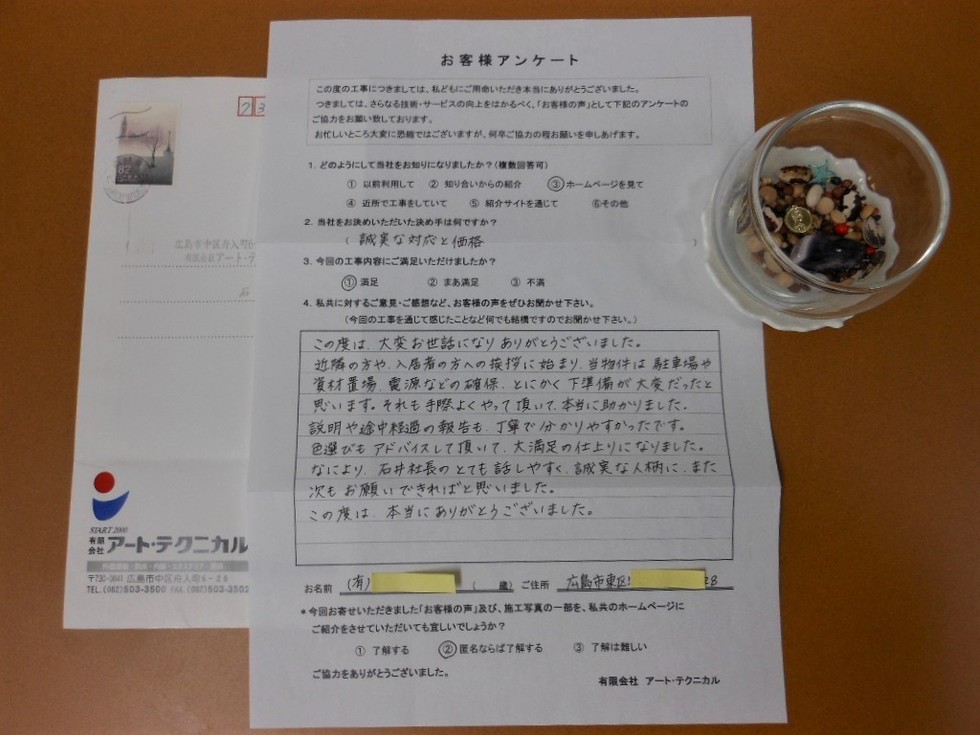 お客様アンケート
この度の工事につきましては、私どもにご用命いただき本当にありがとうございました。
つきましては、さらなる技術・サービスの向上をはかるべく、「お客様の声」として下記のアンケートの
ご協力をお願い致しております。
お忙しいところ大変に恐縮ではございますが、何卒ご協力の程お願いを申しあげます。
1. どのようにして当社をお知りになりましたか？(複数回答可)
① 以前利用して ② 知り合いからの紹介 ③ホームページを見て
④ 近所で工事をしていて ⑤ 紹介サイトを通じて ⑥その他
2. 当社をお決めいただいた決め手は何ですか？
( 誠実な対応と価格 )
3. 今回の工事内容にご満足いただけましたか？
① 満足 ② まあ満足 ③ 不満
4. 私共に対するご意見・ご感想など、お客様の声をぜひお聞かせ下さい。
(今回の工事を通じて感じたことなど何でも結構ですのでお聞かせ下さい。)
この度は、大変お世話になりありがとうございました。
近隣の方や、入居者の方への挨拶に始まり、当物件は駐車場や
資材置場、電源などの確保、とにかく下準備が大変だったと
思います。それも手際よくやって頂いて、本当に助かりました。
説明や途中経過の報告も、丁寧で分かりやすかったです。
色選びもアドバイスして頂いて、大満足の仕上りになりました。
なにより、石井社長のとても話しやすく、誠実な人柄に、また
次もお願いできればと思いました。
この度は、本当にありがとうございました。
お名前 (有) ( 歳) ご住所 広島市東区 28
*今回お寄せいただきました「お客様の声」及び、施工写真の一部を、私共のホームページに
ご紹介をさせていただいても宜しいでしょうか？
① 了解する ②匿名ならば了解する ③ 了解は難しい
ご協力をありがとうございました。
有限会社 アート・テクニカル
82
73
広島市中区舟入町6-
有限会社アート・テ
START 2000
有限会社 アート・テクニカル
〒730-0841 広島市中区舟入町6-28
TEL.(082)503-3500 FAX.(082)503-3502